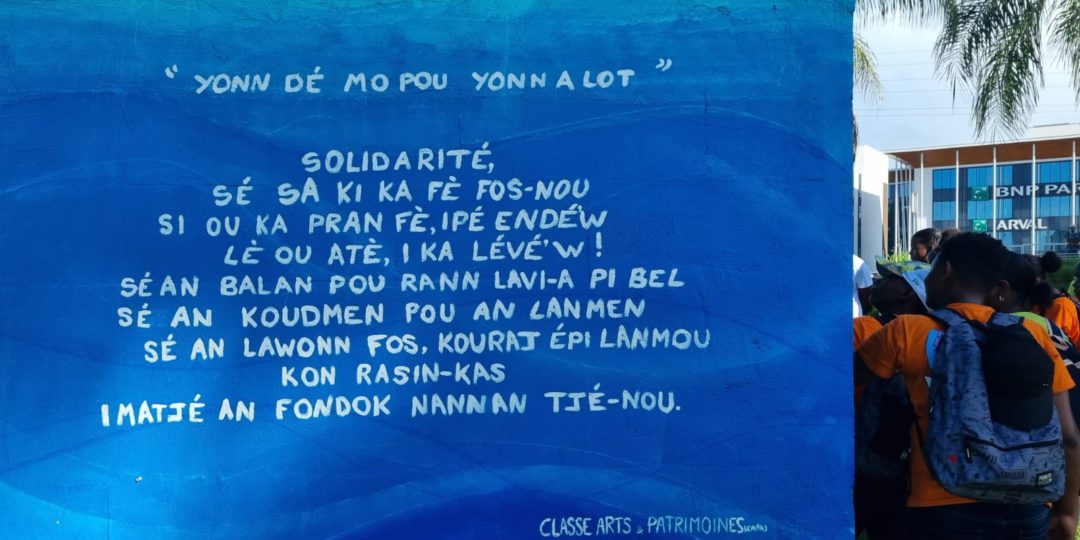 “ YONN DÉ MO POU YONN A LOT ”
SOLIDARITÉ,
SÉ SA KI KA FÈ FOS-NOU
SI OU KA PRAN FÈ, I PÉ ENDÉ'W
LÈ OU ATÈ, I KA LÉVÉ'W !
SÉ AN BALAN POU RANN LAVI-A PI BEL
SÉ AN KOUDMEN POU AN LANMEN
SÉ AN LAWONN FOS, KOURAJ ÉPI LANMOU
KON RASIN-KAS
I MATJÉ AN FONDOK NANNAN TJÉ-NOU.
CLASSE ARTS & PATRIMOINES (CAPA)
BNP PAR
ARVAL